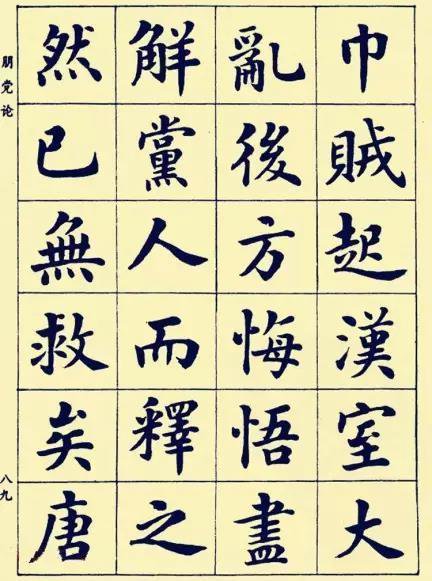 巾賊起漢室大
亂後方悔悟盡
解黨人而釋之
然已無救矣唐
朋党论
八九